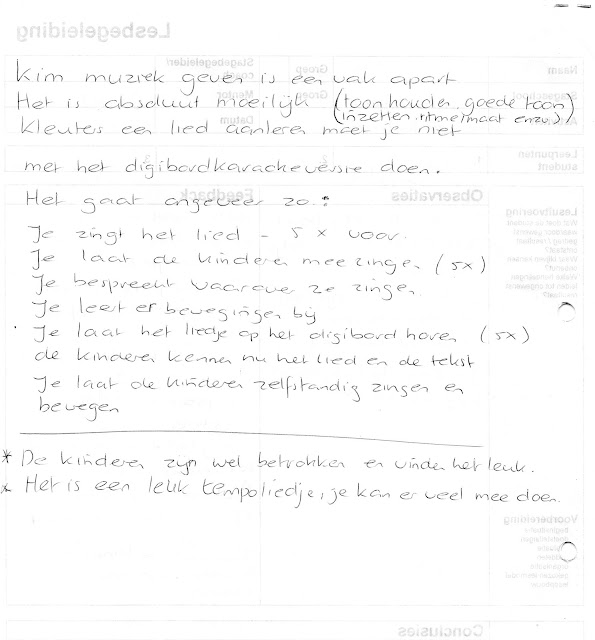 Kim muziek geven is een vak apart
Het is absoluut moeilijk (toonhouden, goede toon)
(inzetten, ritme/maat enzv.)
Kleuters een lied aanleren moet je niet
met het digibordkaraokeversie doen.
Het gaat ongeveer zo:
Je zingt het lied - 5 x voor.
Je laat de kinderen meezingen (5x)
Je bespreekt waarover ze zingen.
Je leert er bewegingen bij
Je laat het liedje op het digibord horen (5x)
de kinderen kennen nu het lied en de tekst
Je laat de kinderen zelfstandig zingen en
bewegen
* De kinderen zijn wel betrokken en vinden het leuk.
* Het is een leuk tempoliedje, je kan er veel mee doen.